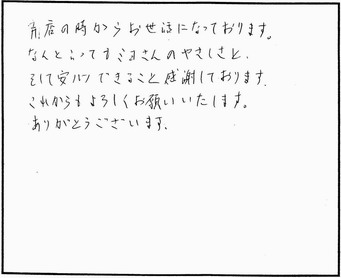 店の時からお世話になっております。
なんといってもミヨさんのやさしさと、
そして安い できること感謝しております。
これからもよろしくお願いいたします。
ありがとうございます。